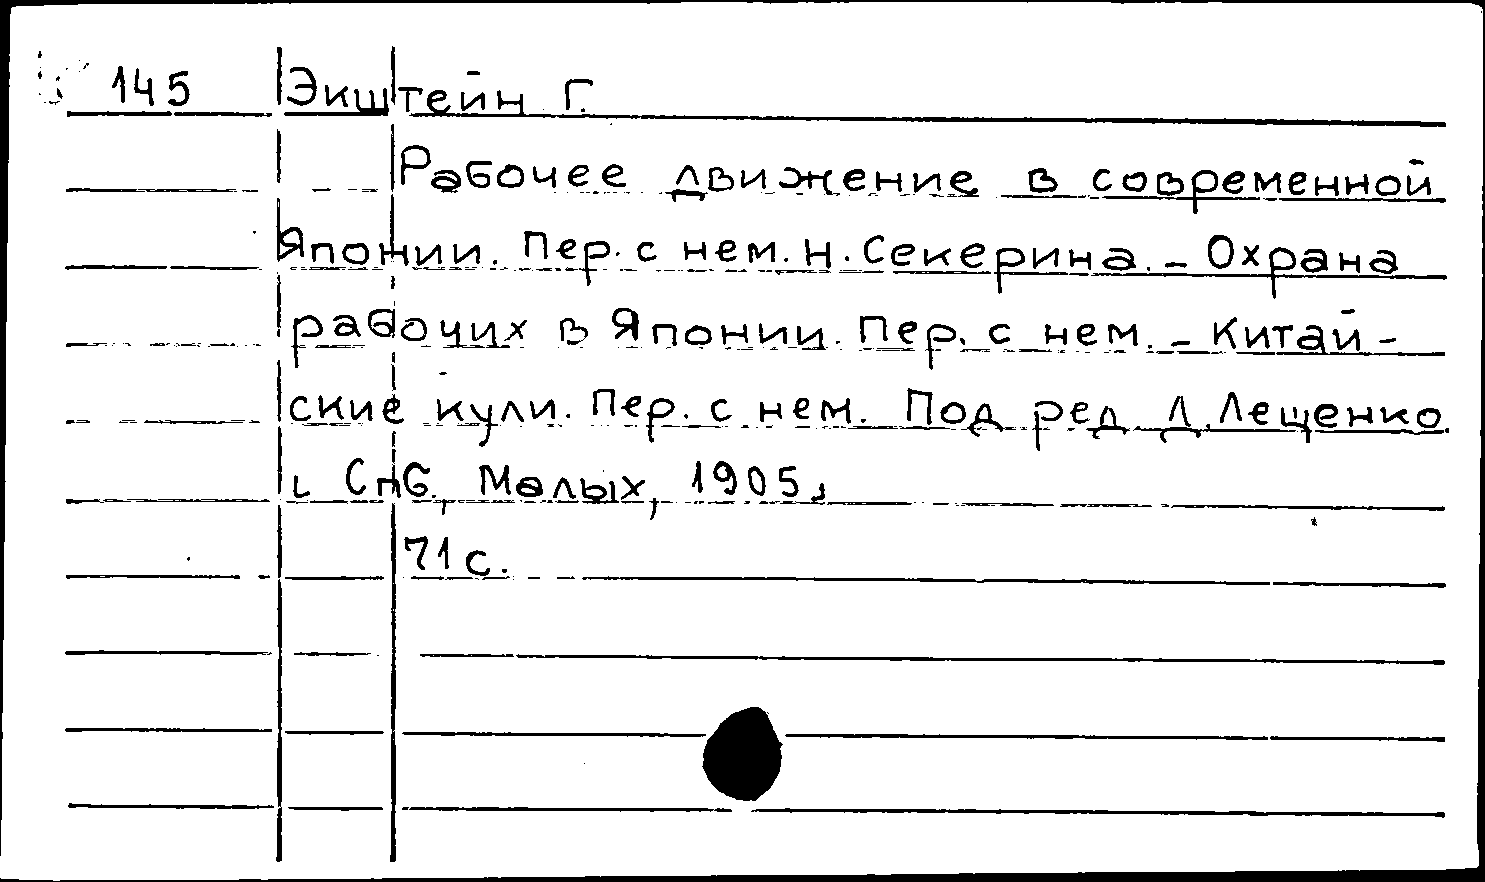 145 Экштейн Г.
Рабочее движение в современной
Японии. Пер. с нем. Н. Секерина. – Охрана
рабочих в Японии. Пер. с нем. – Китай-
ские кули. Пер. с нем. Под ред Д. Лещенко.
Спб., Малых, 1905,
71 с.